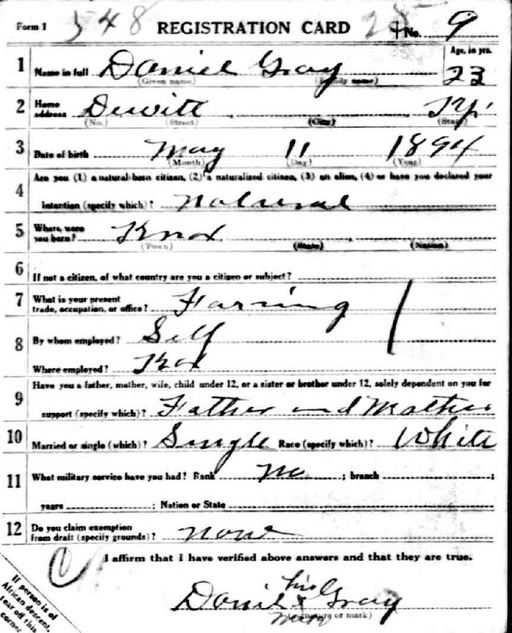 Form 1 548 REGISTRATION CARD No. 9
1 Name in full Daniel Gray Age, in yrs.
(Given name) (Family name) 23
2 Home address Dewitt Ky.
(No.) (Street) (City) (State)
3 Date of birth May 11 1894
(Month) (Day) (Year)
4 Are you (1) a natural-born citizen, (2) a naturalized citizen, (3) an alien, (4) or have you declared your
intention (specify which)? Natural
5 Where were you born? Knox
(Town) (State) (Nation)
6 If not a citizen, of what country are you a citizen or subject?
7 What is your present trade, occupation, or office? Farming
8 By whom employed? Self
Where employed? Knox
9 Have you a father, mother, wife, child under 12, or a sister or brother under 12, solely dependent on you for
support (specify which)? Father and Mother
10 Married or single (which)? Single Race (specify which)? White
11 What military service have you had? Rank no ; branch ;
years ; Nation or State
12 Do you claim exemption from draft (specify grounds)? none
I affirm that I have verified above answers and that they are true.
If person is of
African descent,
tear off this
corner.
his
Daniel x Gray
(Signature or mark)